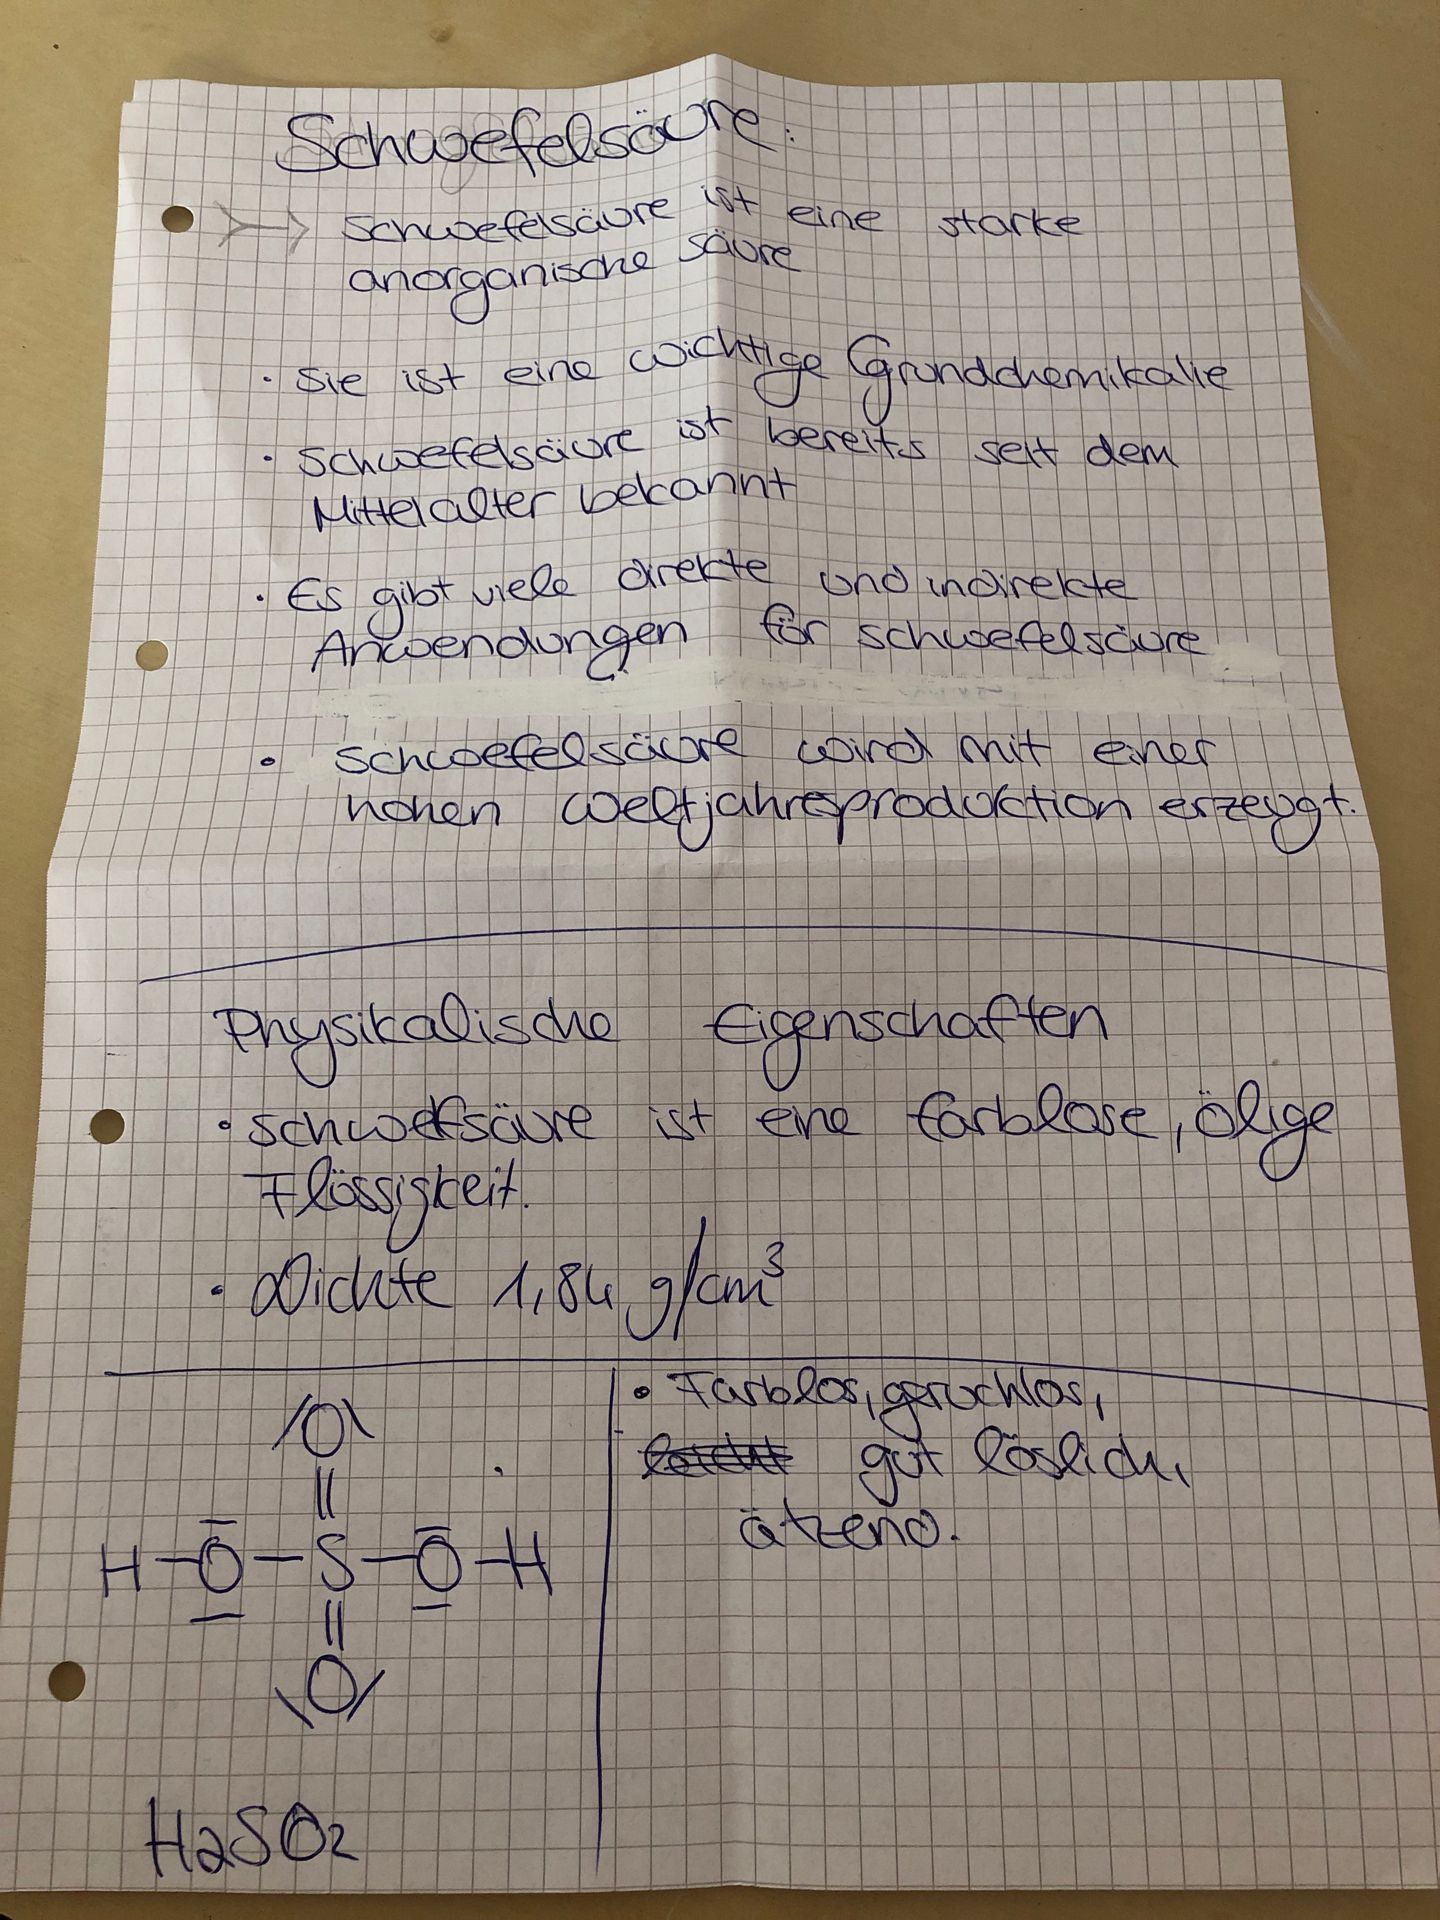 Schwefelsäure:
Schwefelsäure ist eine starke
anorganische säure
· Sie ist eine wichtige Grundchemikalie
· Schwefelsäure ist bereits seit dem
Mittelalter bekannt
· Es gibt viele direkte und indirekte
Anwendungen für schwefelsäure
• schwefelsäure wird mit einer
hohen Weltjahresproduktion erzeugt.
Physikalische Eigenschaften
• schwefsäure ist eine farblose, ölige
Flüssigkeit.
• Dichte 1,84 g/cm³
O
H-O-S-O-H
O
H2SO2
• Farblos, geruchlos,
gut löslich,
ätzend.